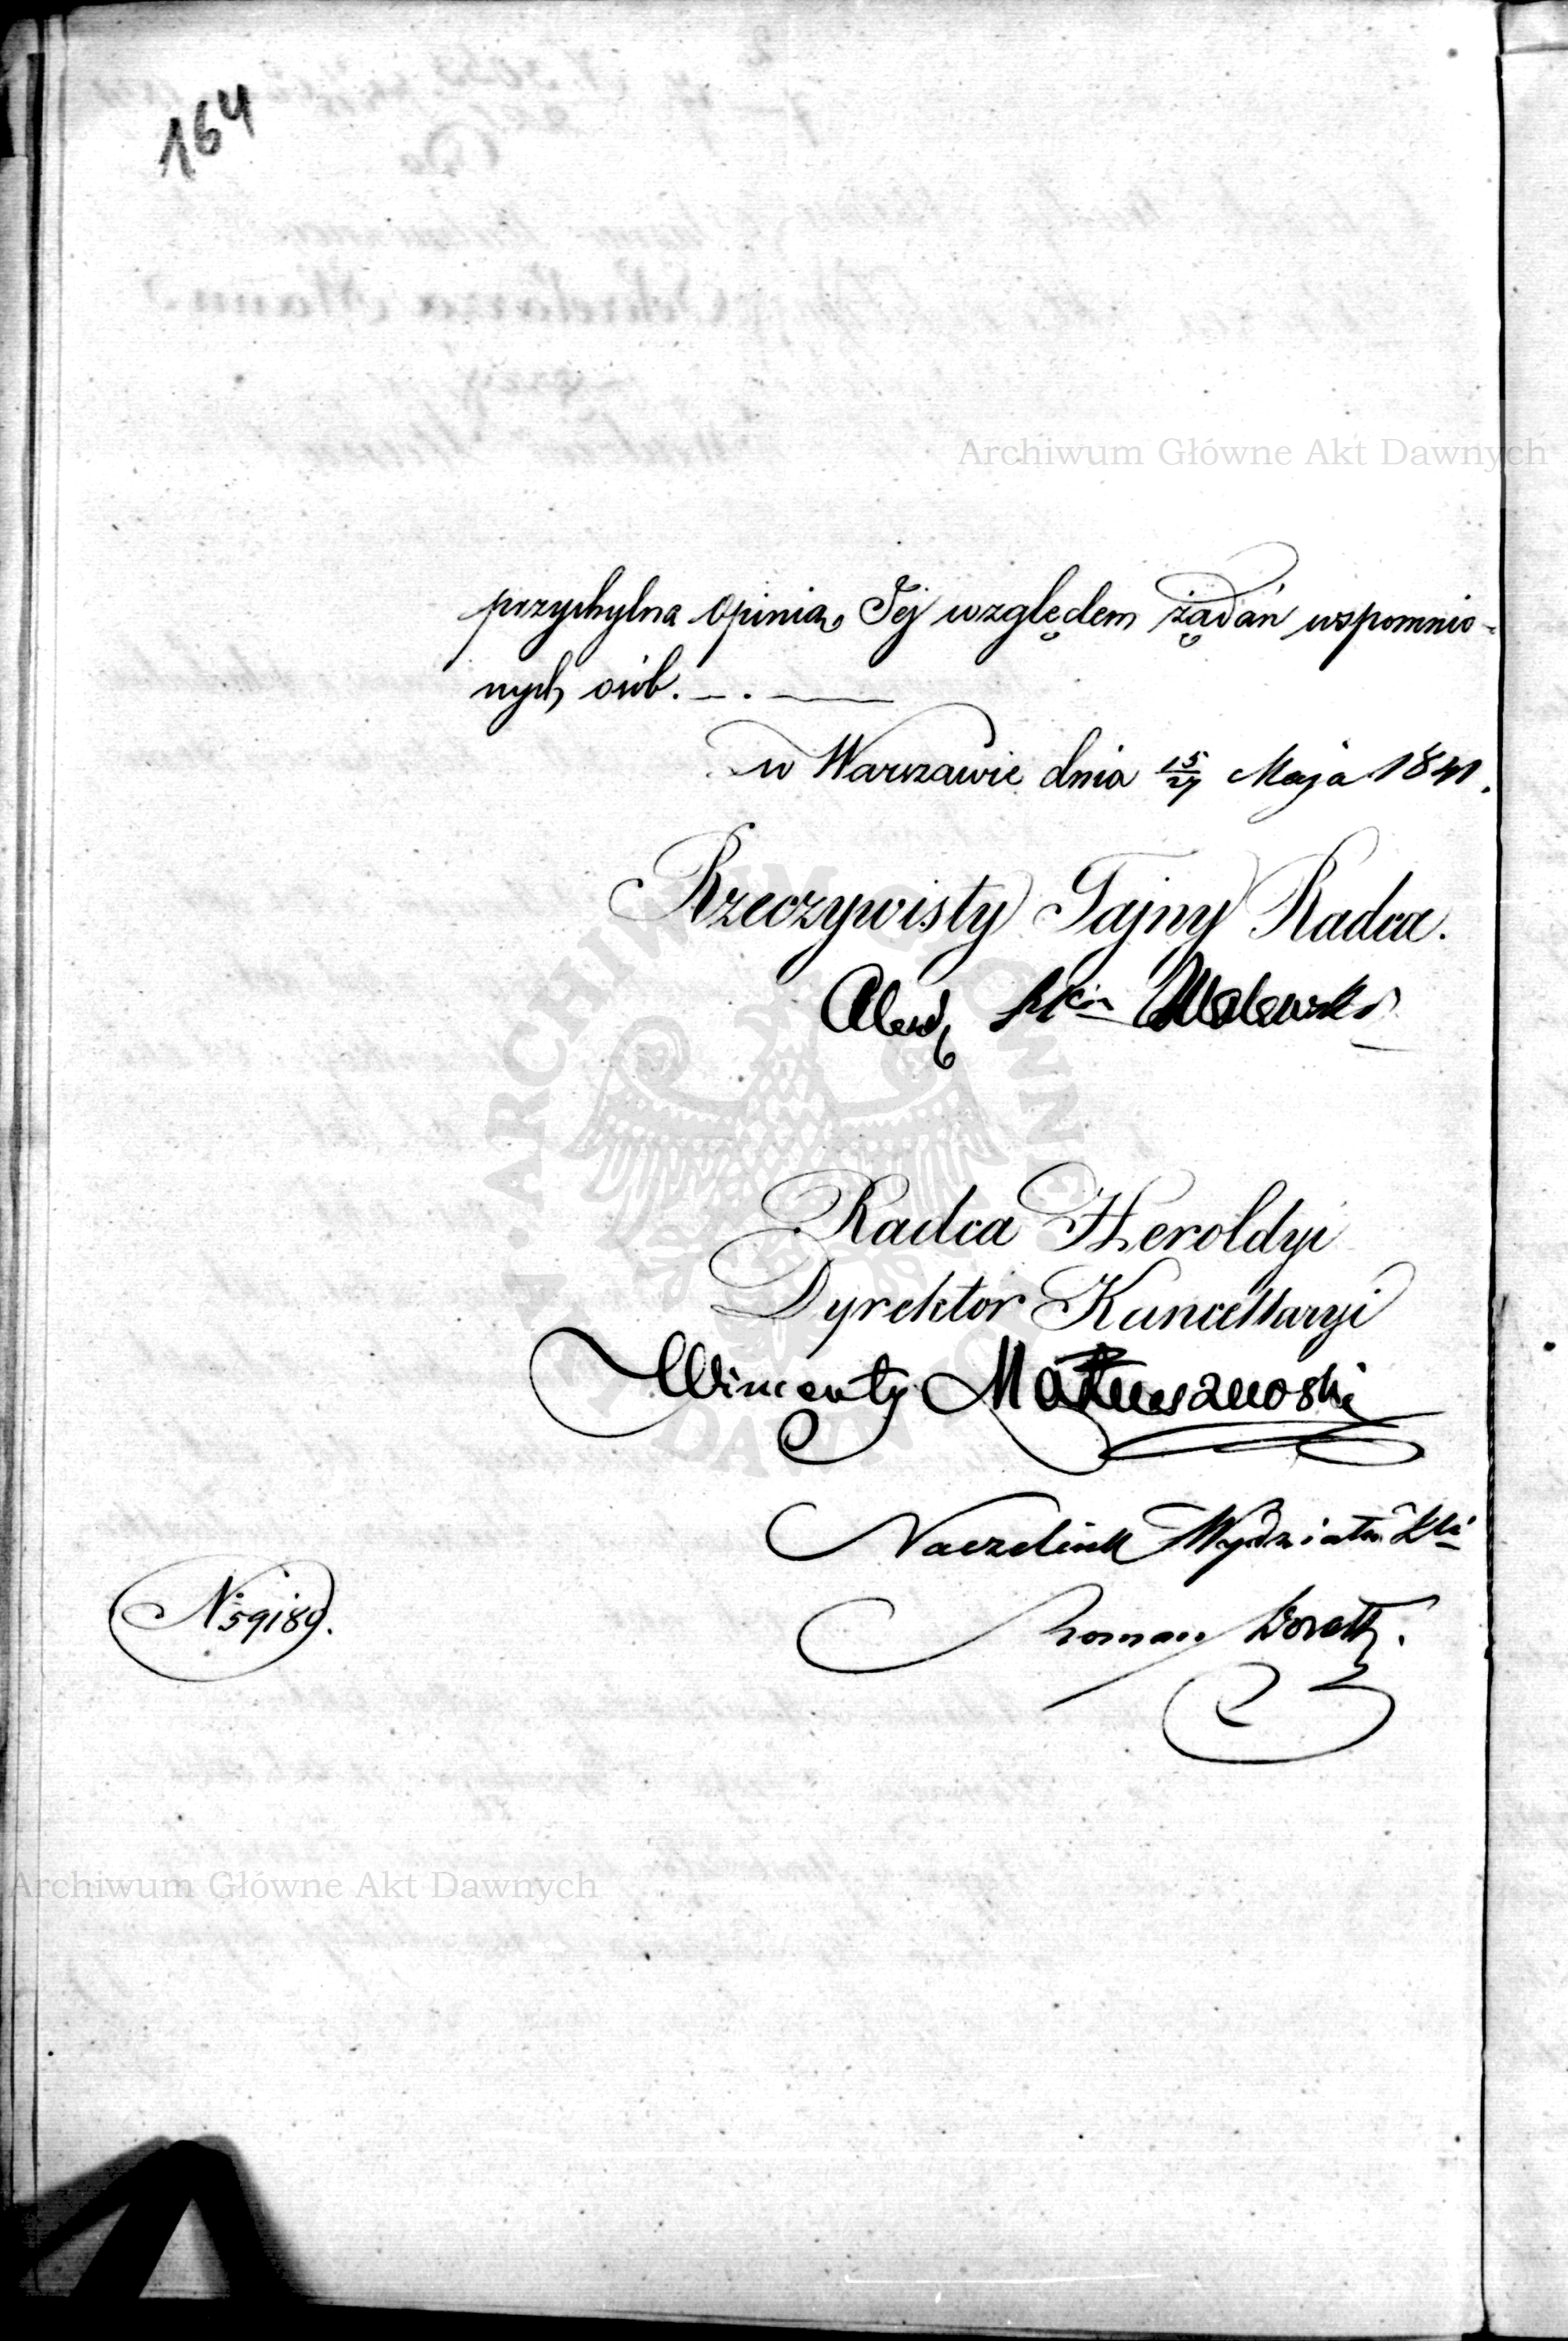 164
Archiwum Główne Akt Dawnych
przychylna opinią Jej względem żądań wspomnio-
nych osób. — . —
w Warszawie dnia 15/27 Maja 1841.
Rzeczywisty Tajny Radca.
Alexr Walewski
Radca Heroldyi
Dyrektor Kancellaryi
Wincenty Matuszewski
Naczelnik Wydziału
N 59189.
Roman
Archiwum Główne Akt Dawnych